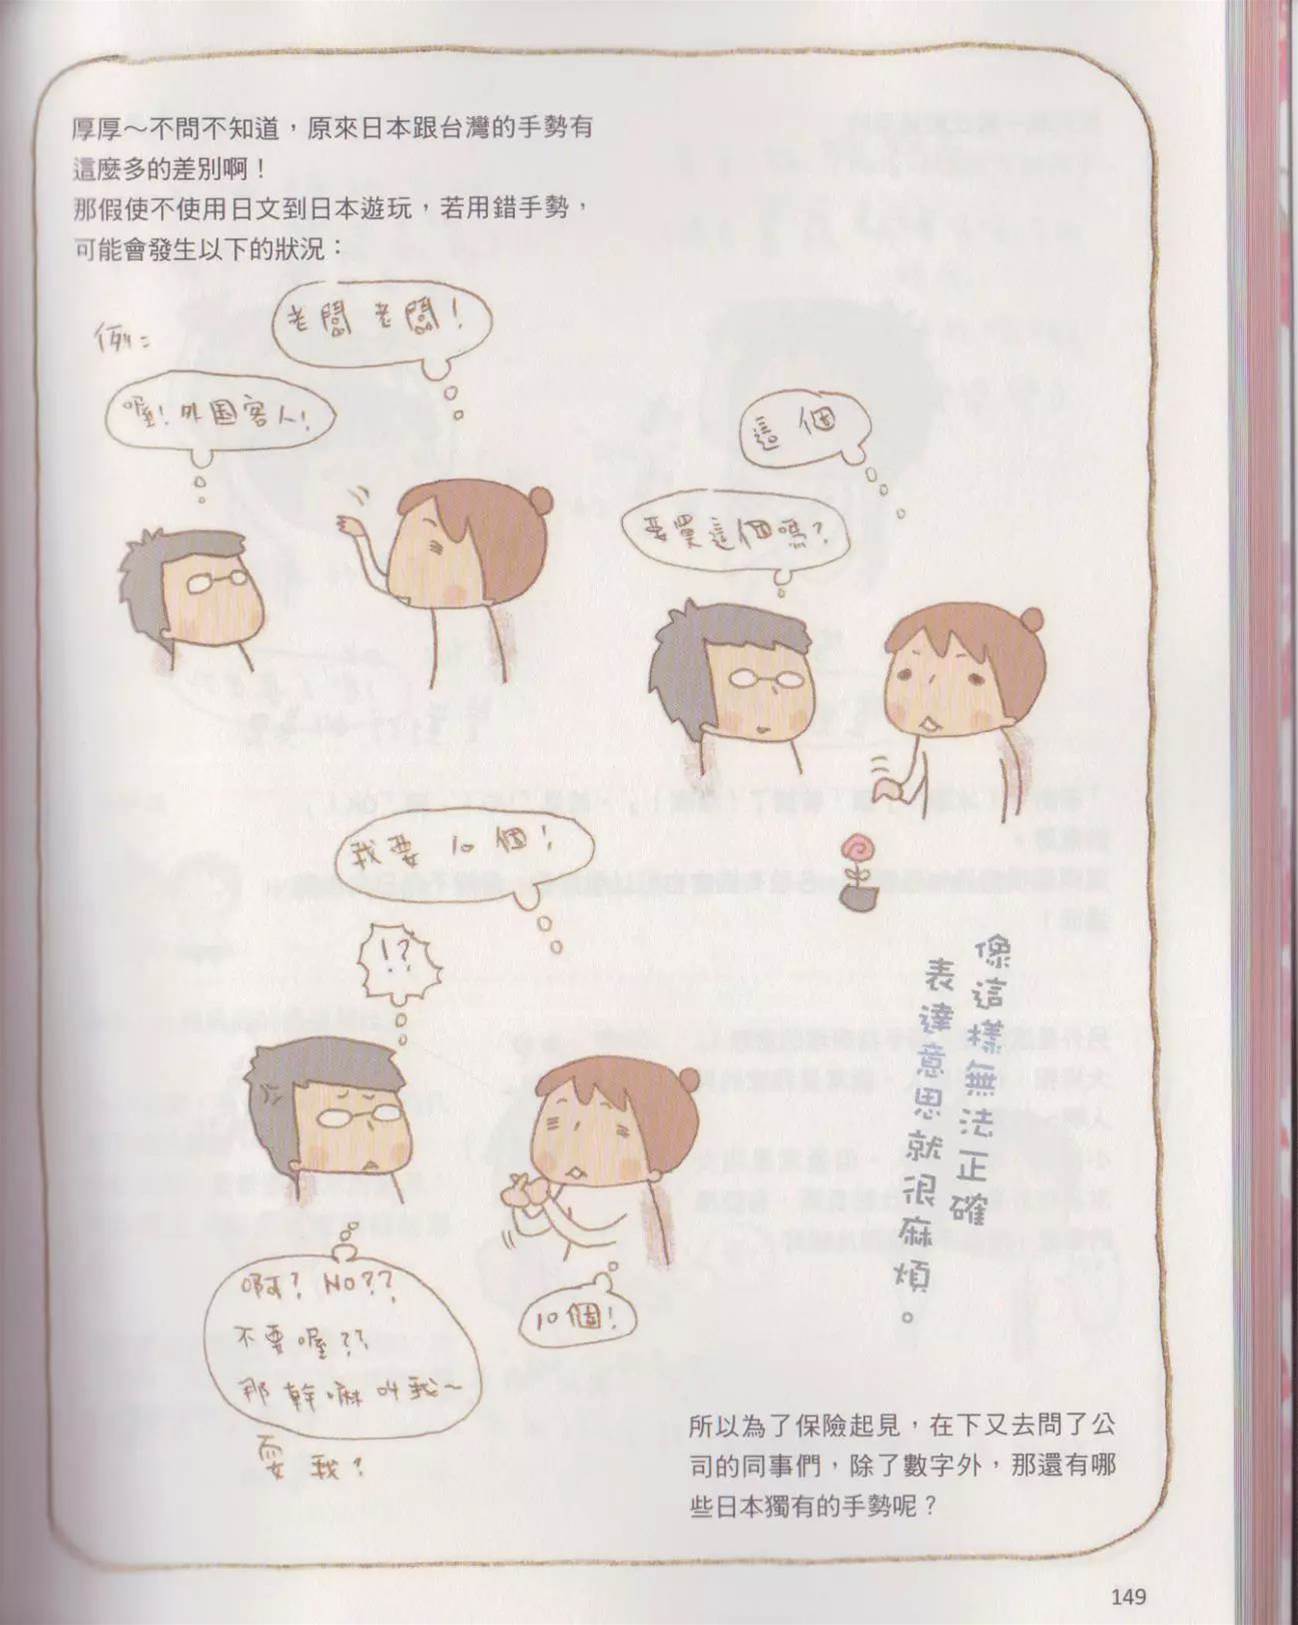 厚厚～不問不知道，原來日本跟台灣的手勢有
這麼多的差別啊！
那假使不使用日文到日本遊玩，若用錯手勢，
可能會發生以下的狀況：
例：
老闆 老闆！
喔！外国客人！
這個
要買這個嗎？
我要 10 個！
！？
10個！
啊？NO？？
不要喔？？
那幹嘛叫我～
耍我？
像這樣無法正確
表達意思就很麻煩。
所以為了保險起見，在下又去問了公
司的同事們，除了數字外，那還有哪
些日本獨有的手勢呢？
149